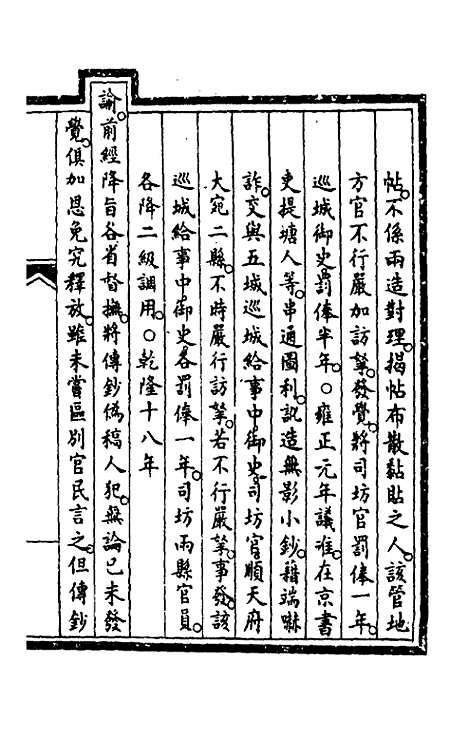 帖。不係兩造對理。揭帖布散黏貼之人。該管地
方官不行嚴加訪拏。發覺。將司坊官罰俸一年。
巡城御史罰俸半年。○雍正元年議准。在京書
吏提塘人等。串通圖利。訊造無影小鈔。藉端嚇
詐。交與五城巡城給事中御史。司坊官。順天府
大宛二縣。不時嚴行訪拏。若不行嚴拏。事發。該
巡城給事中御史。各罰俸一年。司坊兩縣官員。
各降二級調用。○乾隆十八年
諭。前經降旨各省督撫。將傳鈔偽稿人犯。無論已未發
覺。俱加恩免究釋放。雖未嘗區別官民言之。但傳鈔